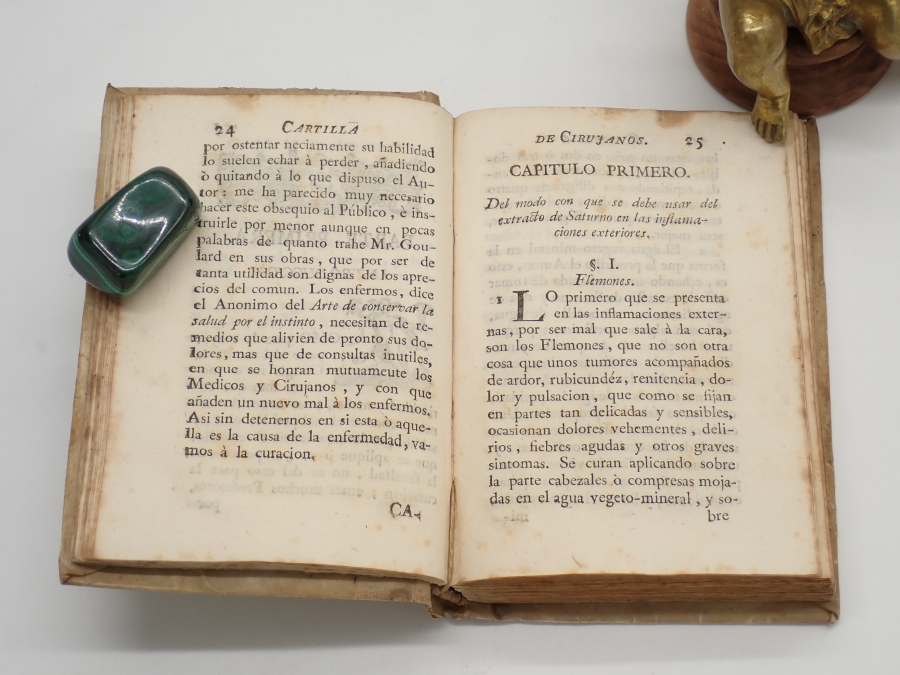 24 CARTILLA
por ostentar neciamente su habilidad
lo suelen echar à perder, añadiendo
ò quitando à lo que dispuso el Au-
tor: me ha parecido muy necesario
hacer este obsequio al Público, è ins-
truirle por menor aunque en pocas
palabras de quanto trahe Mr. Gou-
lard en sus obras, que por ser de
tanta utilidad son dignas de los apre-
cios del comun. Los enfermos, dice
el Anonimo del Arte de conservar la
salud por el instinto, necesitan de re-
medios que alivien de pronto sus do-
lores, mas que de consultas inutiles,
en que se honran mutuameute los
Medicos y Cirujanos, y con que
añaden un nuevo mal à los enfermos.
Asi sin detenernos en si esta ò aque-
lla es la causa de la enfermedad, va-
mos à la curacion.
CA-
DE CIRUJANOS. 25
CAPITULO PRIMERO.
Del modo con que se debe usar del
extracto de Saturno en las inflama-
ciones exteriores.
§. I.
Flemones.
1 LO primero que se presenta
en las inflamaciones exter-
nas, por ser mal que sale à la cara,
son los Flemones, que no son otra
cosa que unos tumores acompañados
de ardor, rubicundéz, renitencia, do-
lor y pulsacion, que como se fijan
en partes tan delicadas y sensibles,
ocasionan dolores vehementes, deli-
rios, fiebres agudas y otros graves
sintomas. Se curan aplicando sobre
la parte cabezales ò compresas moja-
das en el agua vegeto-mineral, y so-
bre